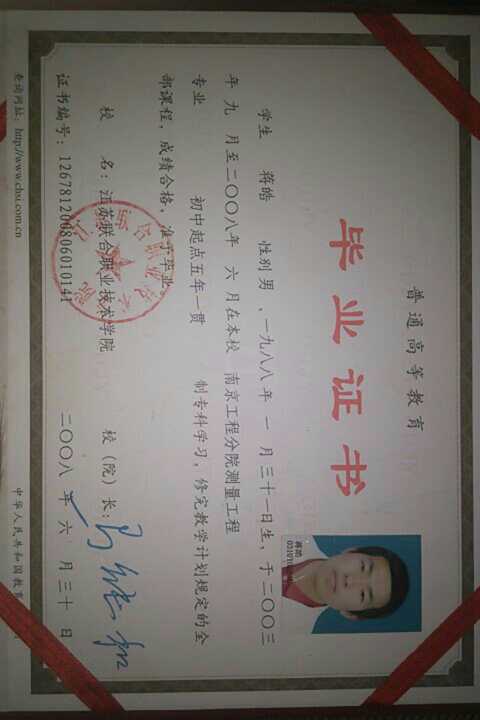 普通高等教育
毕业证书
蒋皓
学生 蒋皓 性别男，一九八八年 一 月三十一日生，于二〇〇三
年 九 月至二〇〇八年 六 月在本校 南京工程分院测量工程
专业 初中起点五年一贯 制专科学习，修完教学计划规定的全
部课程，成绩合格，准予毕业。
校 名：江苏联合职业技术学院 校（院）长：
证书编号：126781200806010141 二〇〇八 年 六 月 三十 日
查询网址：http://www.chsi.com.cn 中华人民共和国教育